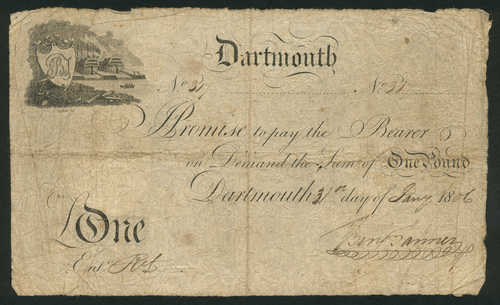 Dartmouth
No 37 No 37
I Promise to pay the Bearer
on Demand the Sum of One Pound
Dartmouth 31st day of Jany 1806
£One
Entd